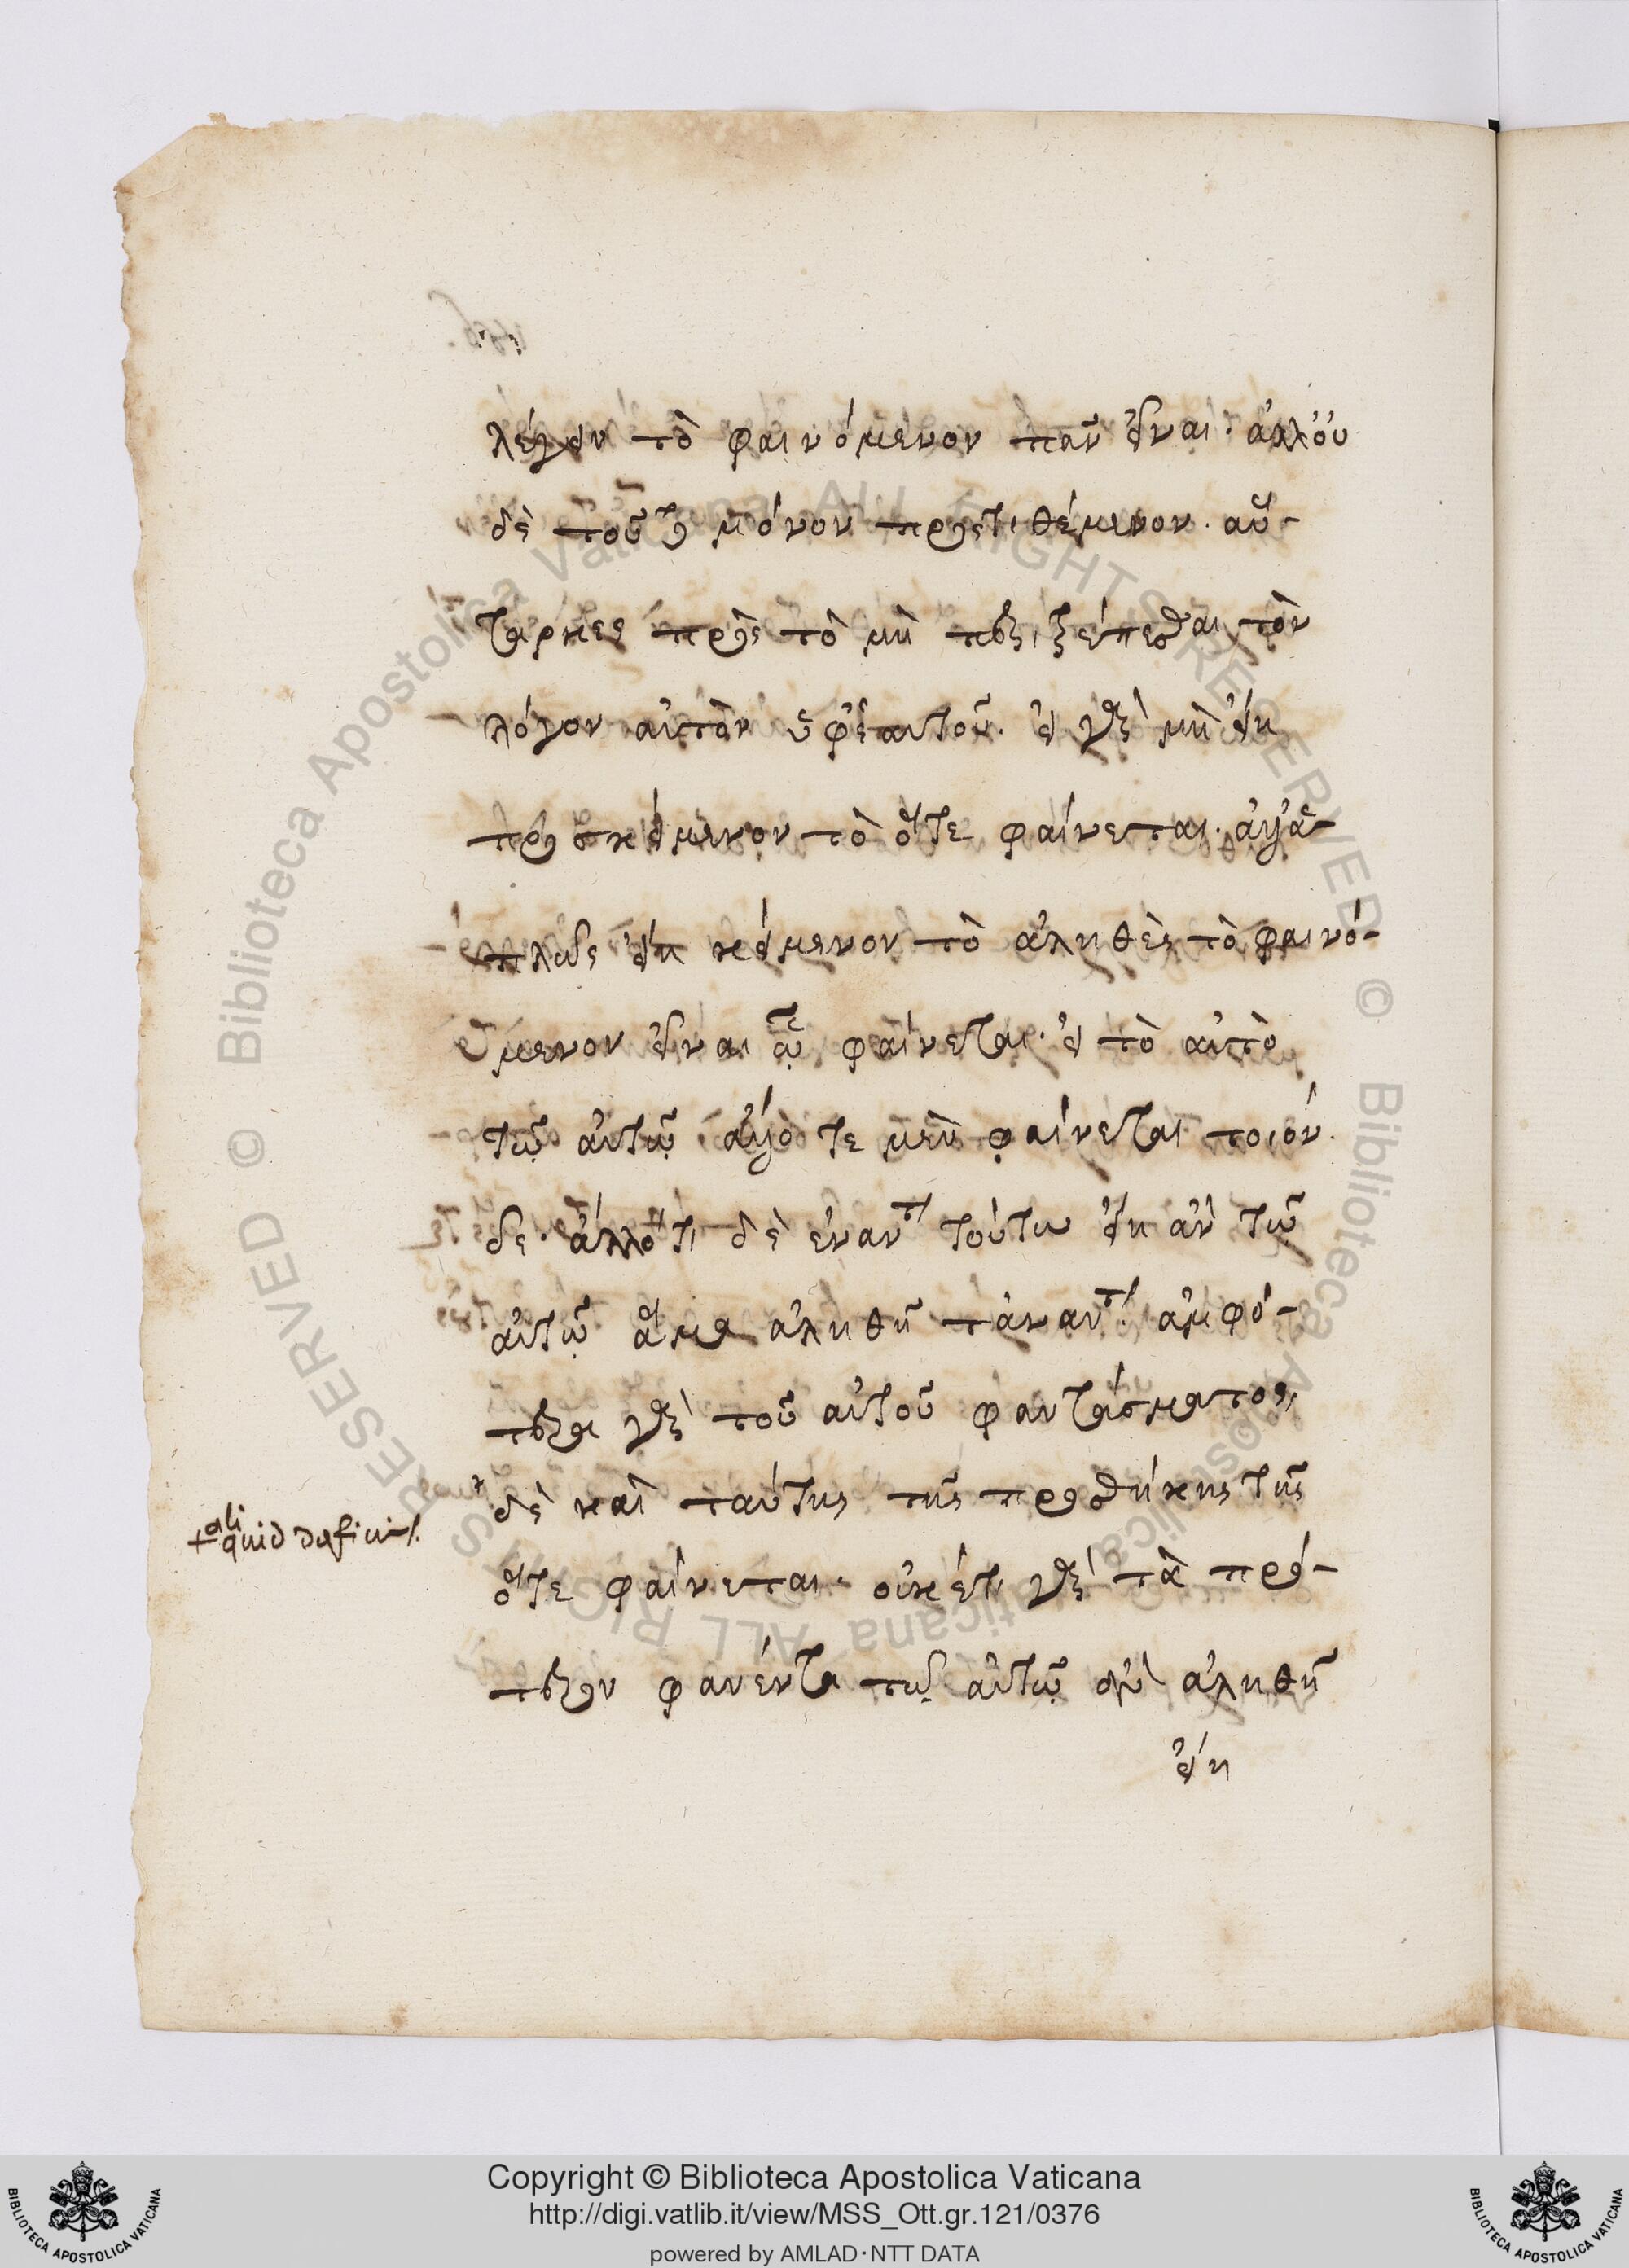 λέγειν τὸ φαινόμενον πᾶν εἶναι· ἀλλ' οὐ
δὲ τοῦτο μόνον προστιθέμενον. αὔ-
ταρκες πρὸς τὸ μὴ περιτρέπεσθαι τὸν
λόγον αὐτὸν ὑφ' ἑαυτοῦ. εἰ γὰρ μὴ εἴη
προσκείμενον τὸ ὅτε φαίνεται. ἀλλ' ἁ-
πλῶς εἴη κείμενον τὸ ἀληθὲς τὸ φαινό-
μενον εἶναι ᾧ φαίνεται· εἰ τὸ αὐτὸ
τῷ αὐτῷ ἄλλοτε μὲν φαίνεται τοιόν
δε· ἄλλοτε δὲ ἐναντ τούτω εἴη ἂν τῶ
αὐτῷ ἅμα ἀληθῆ τἀναντ ἀμφό-
τερα γὰρ τοῦ αὐτοῦ φαντάσματος,
δὲ καὶ ταύτης τῆς προσθήκης τῆς
+ aliquid deficit.
ὅτε φαίνεται· οὐκέτι γὰρ τὰ πρό-
τερον φανέντα τῷ αὐτῷ νῦν ἀληθῆ
εἴη
Copyright © Biblioteca Apostolica Vaticana
http://digi.vatlib.it/view/MSS_Ott.gr.121/0376
powered by AMLAD·NTT DATA
BIBLIOTECA APOSTOLICA VATICANA
BIBLIOTECA APOSTOLICA VATICANA
© Biblioteca Apostolica Vaticana ALL RIGHTS RESERVED © Biblioteca Apostolica Vaticana ALL RIGHTS RESERVED